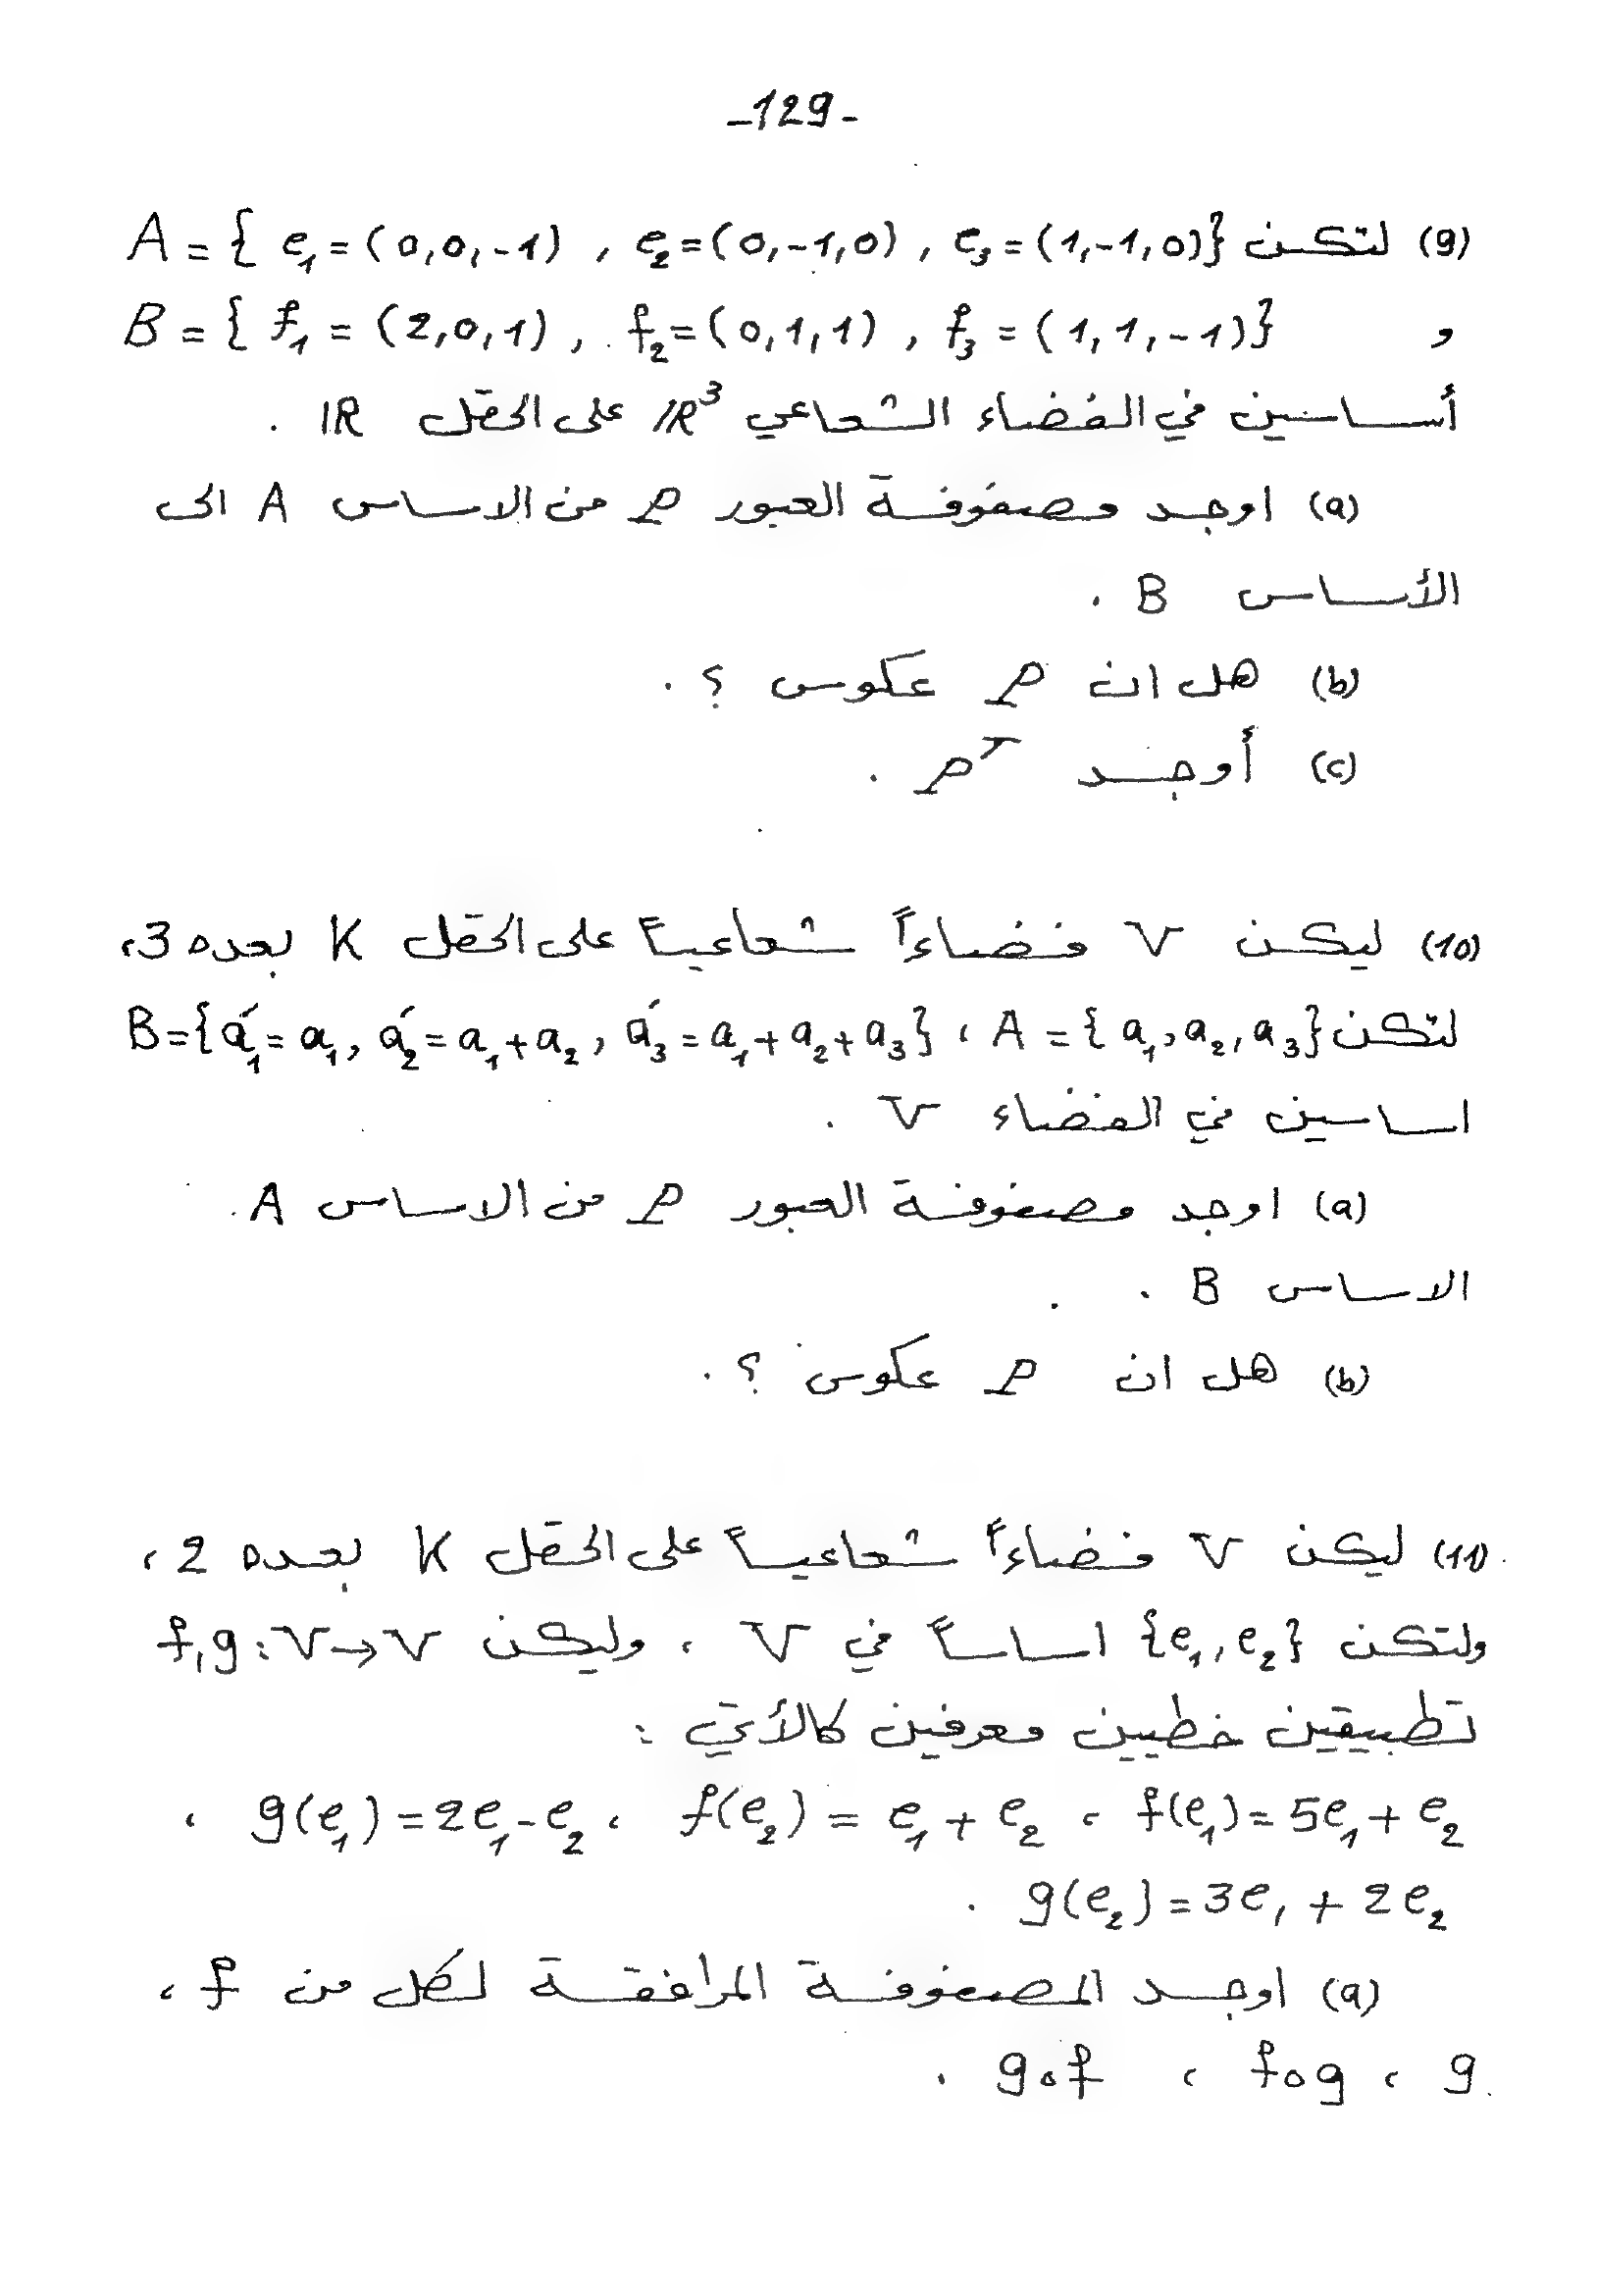 -129-
(9) لتكن A = { e₁ = (0,0,-1) , e₂ = (0,-1,0) , e₃ = (1,-1,0)}
و B = { f₁ = (2,0,1) , f₂ = (0,1,1) , f₃ = (1,1,-1)}
أساسين في الفضاء الشعاعي ℝ³ على الحقل ℝ .
(a) اوجد مصفوفة العبور P من الاساس A الى
الأساس B .
(b) هل ان P عكوس ؟ .
(c) أوجد Pᵀ .
(10) ليكن V فضاءاً شعاعياً على الحقل K بعده 3،
لتكن A = { a₁, a₂, a₃} ، B = {a₁' = a₁, a₂' = a₁ + a₂ , a₃' = a₁ + a₂ + a₃}
اساسين في الفضاء V .
(a) اوجد مصفوفة العبور P من الاساس A
الاساس B .
(b) هل ان P عكوس ؟ .
(11) ليكن V فضاءاً شعاعياً على الحقل K بعده 2 ،
ولتكن {e₁, e₂} اساساً في V ، وليكن f,g : V → V
تطبيقين خطيين معرفين كالأتي :
f(e₁) = 5e₁ + e₂ ، f(e₂) = e₁ + e₂ ، g(e₁) = 2e₁ - e₂ ،
g(e₂) = 3e₁ + 2e₂ .
(a) اوجد المصفوفة المرافقة لكل من f ،
g ، f∘g ، g∘f .